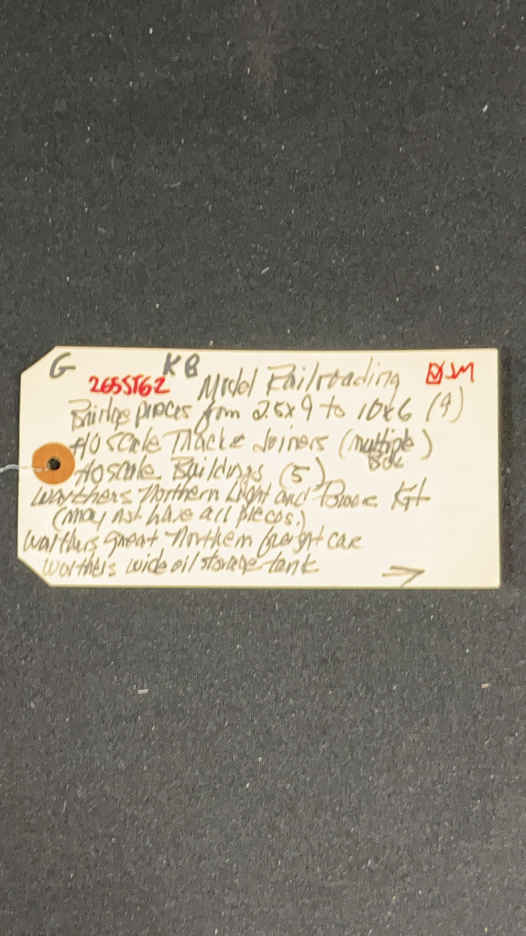 G KB
265ST62 Model Railroading ☑ JM
Bridge pieces from 25x9 to 10x6 (4)
HO scale Track & Joiners (multiple)
HO scale Buildings (5)
Walthers Northern Light and Power Kit
(may not have all pieces.)
Walthers Great Northern freight car
Walthers wide oil storage tank →